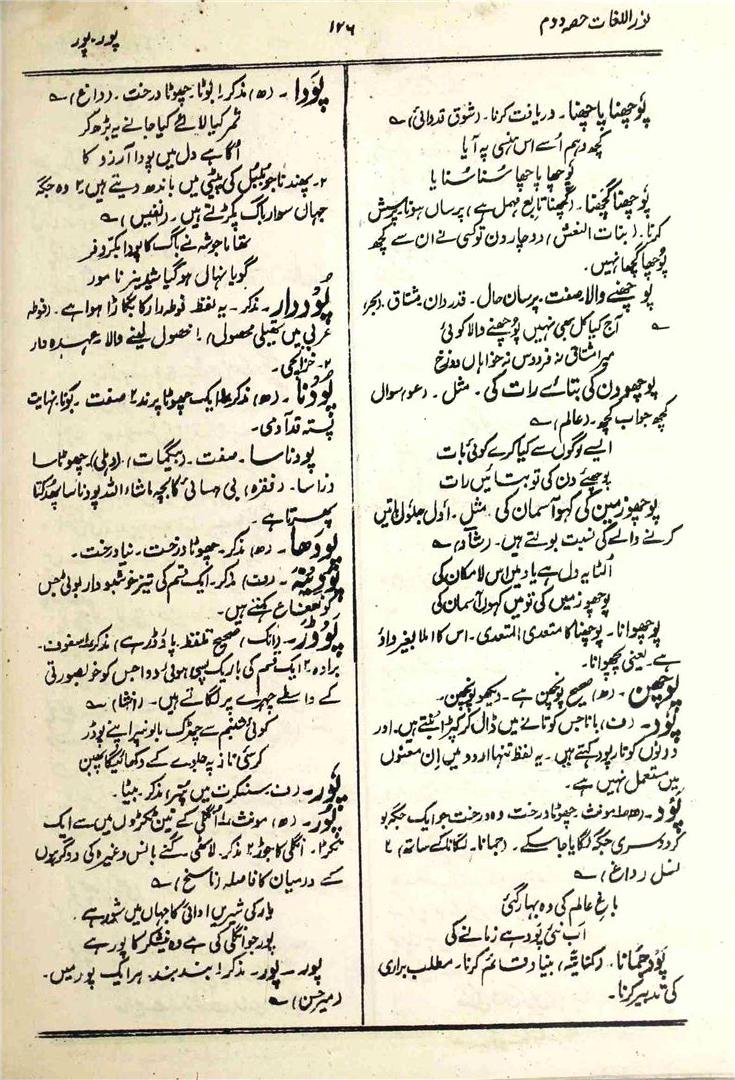 نور اللغات حصہ دوم
۱۲۶
پور۔پور
پوچھنا پاچھنا۔ دریافت کرنا۔ (شوق قدوائی) ؎
کچھ وہم اُسے اس ہنسی پہ آیا
پوچھا پاچھا سُنا سُنایا
پوچھنا گچھنا۔ (گچھنا تابع مہمل ہے) پرساں ہونا پرسش
کرنا۔ (بنات النعش) دوچار دن تو کسی نے ان سے کچھ
پوچھا گچھا نہیں۔
پوچھنے والا۔ صفت۔ پرسان حال۔ قدردان مشتاق۔ (بحر)
؎ آج کیا کل بھی نہیں پوچھنے والا کوئی
میں مشتاق نہ فردوس نہ خواہاں دوزخ
پوچھو دن کی بتائے رات کی۔ مثل۔ (عو) سوال
کچھ جواب کچھ۔ (عالم) ؎
ایسے لوگوں سے کیا کرے کوئی بات
پوچھئے دن کی تو بتائیں رات
پوچھو زمین کی کہو آسمان کی۔ مثل۔ اول جلول باتیں
کرنے والے کی نسبت بولتے ہیں۔ (رشاد) ؎
اُلٹا یہ دل ہے یاد میں اس لامکان کی
پوچھو زمیں کی تو میں کہوں آسمان کی
پوچھوانا۔ پوچھنا کا متعدی المتعدی۔ اس کا املا بغیر واؤ
ہے۔ یعنی پچھوانا۔
پوچھن۔ (ھ) صحیح پونچھن ہے۔ دیکھو پونچھن۔
پود۔ (ف) بانا جس کو تانے میں ڈال کر کپڑا بنتے ہیں۔ اور
دونوں کو تار پود کہتے ہیں۔ یہ لفظ تنہا اردو میں اِن معنوں
میں مستعمل نہیں ہے۔
پود۔ (ھ) مونث۔ چھوٹا درخت وہ درخت جو ایک جگہ بو
کر دوسری جگہ لگایا جا سکے۔ (جمانا۔ لگانا کے ساتھ) ۲
نسل (داغ) ؎
باغ عالم کی وہ بہار گئی
اب نئی پود ہے زمانے کی
پود جمانا۔ (کنایتہً) بنیاد قائم کرنا۔ مطلب براری
کی تدبیر کرنا۔
پودا۔ (ھ) مذکر۔ ۱ بوٹا۔ چھوٹا درخت۔ (داغ) ؎
ثمر کیا لائے کیا جانے یہ بڑھ کر
اُگا ہے دل میں پودا آرزو کا
۲۔ پھندنا جو بلبل کی پیٹی میں باندھ دیتے ہیں ۳ وہ جگہ
جہاں سوار باگ پکڑتے ہیں۔ (نفیس) ؎
تھاما جو شہ نے باگ کا پودا بکروفر
گویا نہال ہو گیا شبدیز نامور
پوددار۔ مذکر۔ یہ لفظ فوطہ دار کا بگاڑا ہوا ہے۔ (فوطہ
عربی میں تھیلی محصول) ۱ محصول لینے والا۔ عہدہ دار
۲۔ خزانچی۔
پودنا۔ (ھ) مذکر ۱ ایک چھوٹا پرند ۲ صفت۔ بونا نہایت
پستہ قد آدمی۔
پودنا سا۔ صفت۔ (بیگمات) (دہلی) چھوٹا سا
ذرا سا۔ (فقرہ) بی ہمسائی کا بچہ ماشاء اللہ پودنا سا پھدکتا
پھرتا ہے۔
پودھا۔ (ھ) مذکر۔ چھوٹا درخت۔ نیا درخت۔
پودینہ۔ (ف) مذکر۔ ایک قسم کی تیز خوشبودار بوٹی جس
کو نعناع کہتے ہیں۔
پوڈر۔ (انگ) صحیح تلفظ۔ پاؤڈر ہے) مذکر۔ ۱ سفوف۔
برادہ ۲ ایک قسم کی باریک پسی ہوئی دوا جس کو خوبصورتی
کے واسطے چہرے پر لگاتے ہیں۔ (انشا) ؎
کوئی شبنم سے چھڑک بالوں پر اپنے پوڈر
کرسی ناز پہ جلوے کے دکھائیگا پھبن
پور۔ (ف۔ سنسکرت میں پتر) مذکر۔ بیٹا۔
پور۔ (ھ) مونث۔ ۱ اُنگلی کے تین ٹکڑوں میں سے ایک
ٹکڑا۔ انگلی کا جوڑ ۲ مذکر۔ لاٹھی گنے بانس وغیرہ کی دو گرہوں
کے درمیان کا فاصلہ (ناسخ) ؎
یار کی شیریں ادائی کا جہاں میں شور ہے
پور جو انگلی کی ہے وہ نیشکر کا پور ہے
پور۔ پور۔ مذکر۔ ۱ بند بند۔ ہر ایک پور میں۔
(میر حسن) ؎